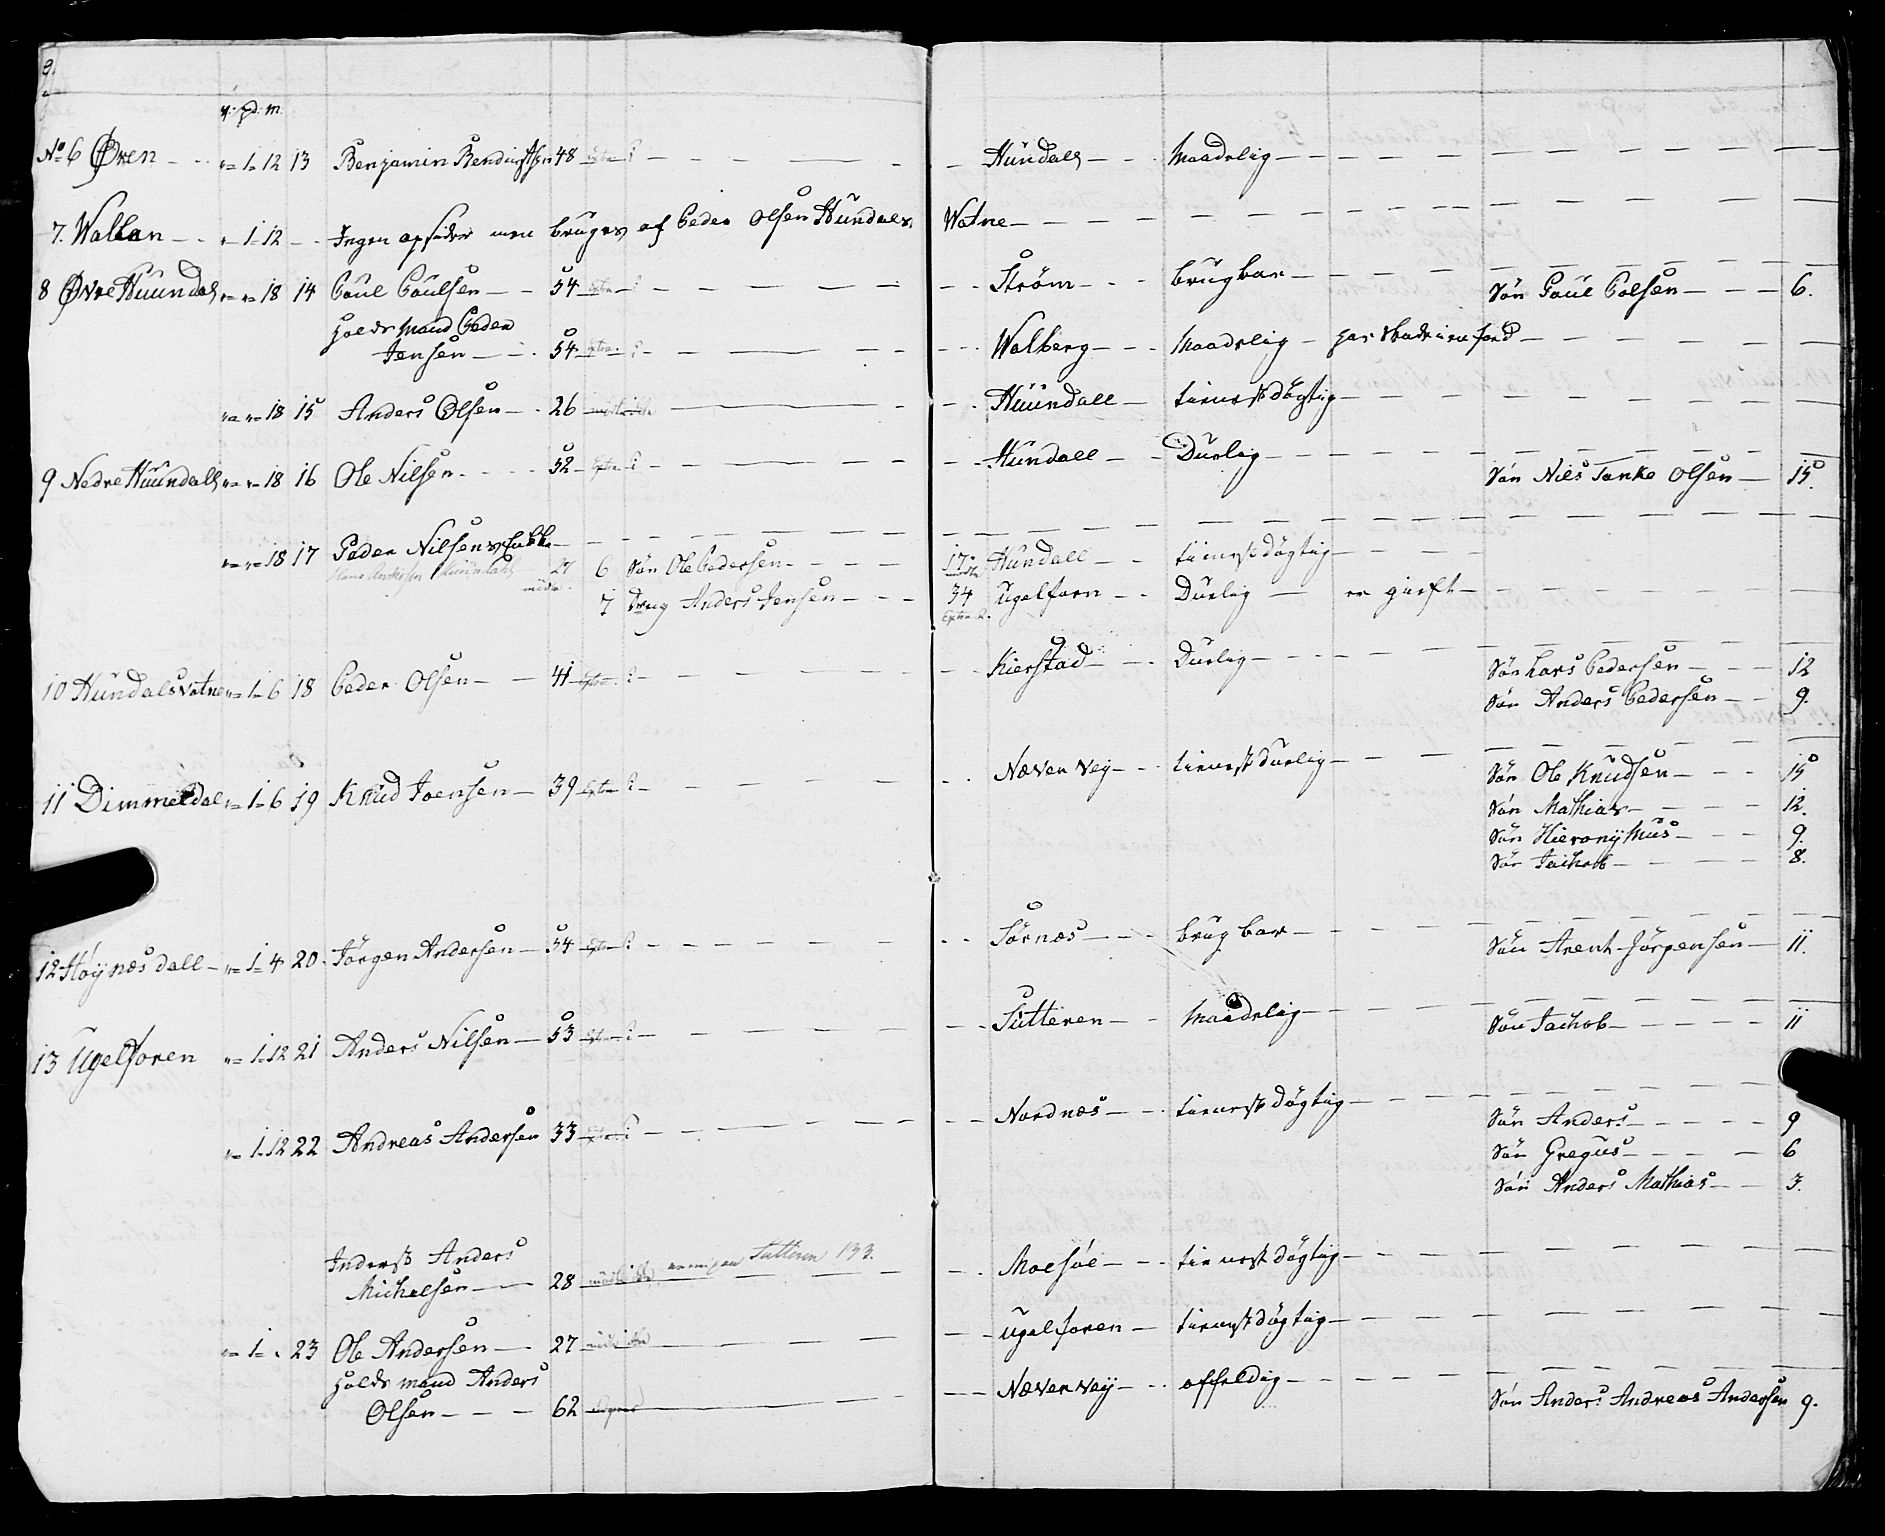 v: pd: m.
No 6 Øren - - „ = 1 = 12 13 Benjamin Bendixsen 48 Extra 2 - - - Hundals - - Maadelig - - -
7. Wallan - - „ 1 12 - - Ingen opsider men bruges af Peder Olsen Hundals Watne - - -
8 Øvre Huundals „ = „ = 18 14 Poul Poulsen - - 54 Extra 2 - - - Strøm - - - brugbar - - - Søn Poul Polsen - - - 6.
Holds Mand Peder
Jensen - - - 54 Extra 2 - - - Walberg - - Maadelig - har skade i en fod - - -
„ = „ = 18 15 Anders Olsen - - 26 - - - Huundall - tienestdøgtig - - -
9 Nedre Huundals „ = „ = 18 16 Ole Nilsen - - - 52 Extra 2 - - - Hundall - - Durlig - - - Søn Niels Tanke Olsen - 15.
„ = „ = 18 17 Peder Nilsens Enke - - -
Hans Andersen Huundahl 27 6 Søn Ole Pedersen - - - 17 Hundall - - tienestdøgtig - - -
7 Dreng Anders Jensen - - - 34 Ugelforn - - Durlig - er gieft - - -
Extra 2.
10 Hundals Vatne „ = 1 = 6 18 Peder Olsen - - 41 Extra 2 - - - Kierstad - - - Durlig - - - Søn Lars Pedersen - - - 12
Søn Anders Pedersen - - 9.
11 Dimmeldal „ = 1 = 6 19 Knud Joensen - 39 Extra 2 - - - Næver vey - - tienest durlig - - - Søn Ole Knudsen - - - 15
Søn Mathias - - - 12.
Søn Hieronymus - - - 9.
Søn Jachob - - - 8.
12 Høynæs dall - „ = 1 = 4 20 Jørgen Andersen - 54 Extra 2 - - - Sørnæs - - - brugbar - - - Søn Arent Jørgensen - 11.
13 Ugelforen „ = 1 = 12 21 Anders Nilsen - 53 Extra 2 - - - Sutteren - - Maadelig - - - Søn Jachob - - - 11
„ = 1 = 12 22 Andreas Andersen 33 Extra 2 - - - Nordnæs - - - tienestdøgtig - - - Søn Anders - - - 9
Søn Gregus - - - 6
Søn Anders Mathias - - 3.
Inderst Anders
Michelsen - - 28 Sutteren 133. - - - Moesøe - - - tienestdøgtig - - -
„ = 1 = „ 23 Ole Andersen - - 27 - - - Ugelforen - tienestdøgtig - - -
Holds mand Anders
Olsen - - - 62 - - - Næver vey - - - affeldig - - - Søn Anders Andreas Andersen 9.